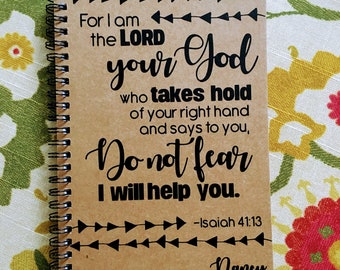 For I am
the LORD
your God
who takes hold
of your right hand
and says to you,
Do not fear
I will help you.
-Isaiah 41:13